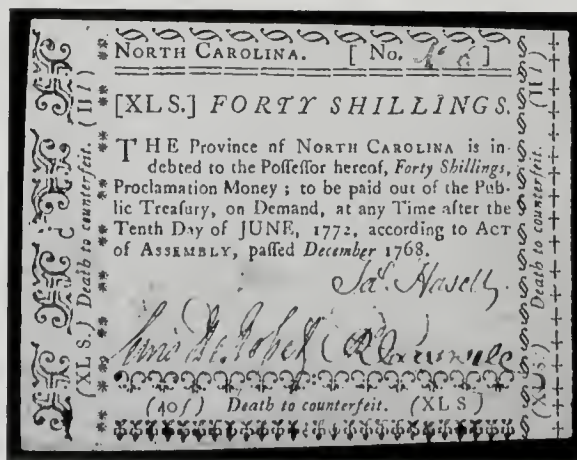 NORTH CAROLINA. [ No. ]
[XLS.] FORTY SHILLINGS.
THE Province of NORTH CAROLINA is in-
debted to the Possessor hereof, Forty Shillings,
Proclamation Money ; to be paid out of the Pub-
lic Treasury, on Demand, at any Time after the
Tenth Day of JUNE, 1772, according to ACT
of ASSEMBLY, passed December 1768.
Jas. Hasell
(40s) Death to counterfeit. (XLS)
(XLS.) Death to counterfeit. (II l)
(XLS.) Death to counterfeit. (II l)